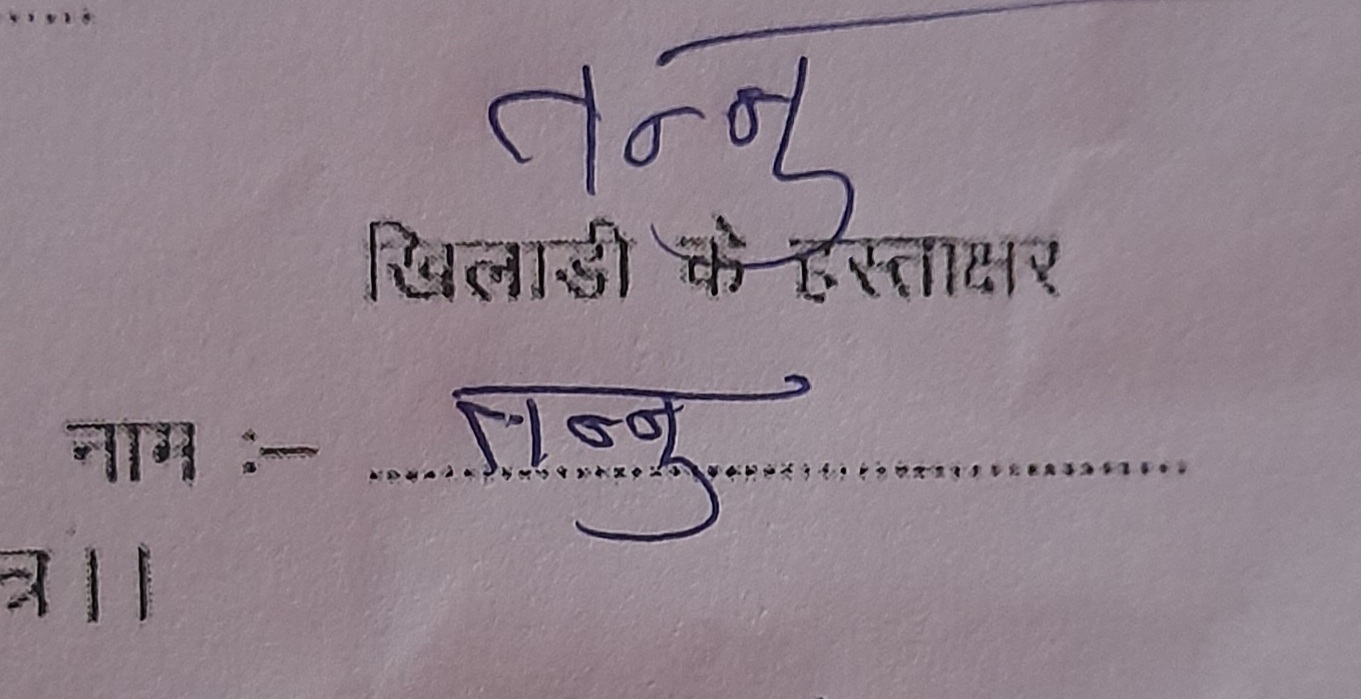 .....
तन्नु
खिलाडी के हस्ताक्षर
नाम :- तन्नु
त्र ।।